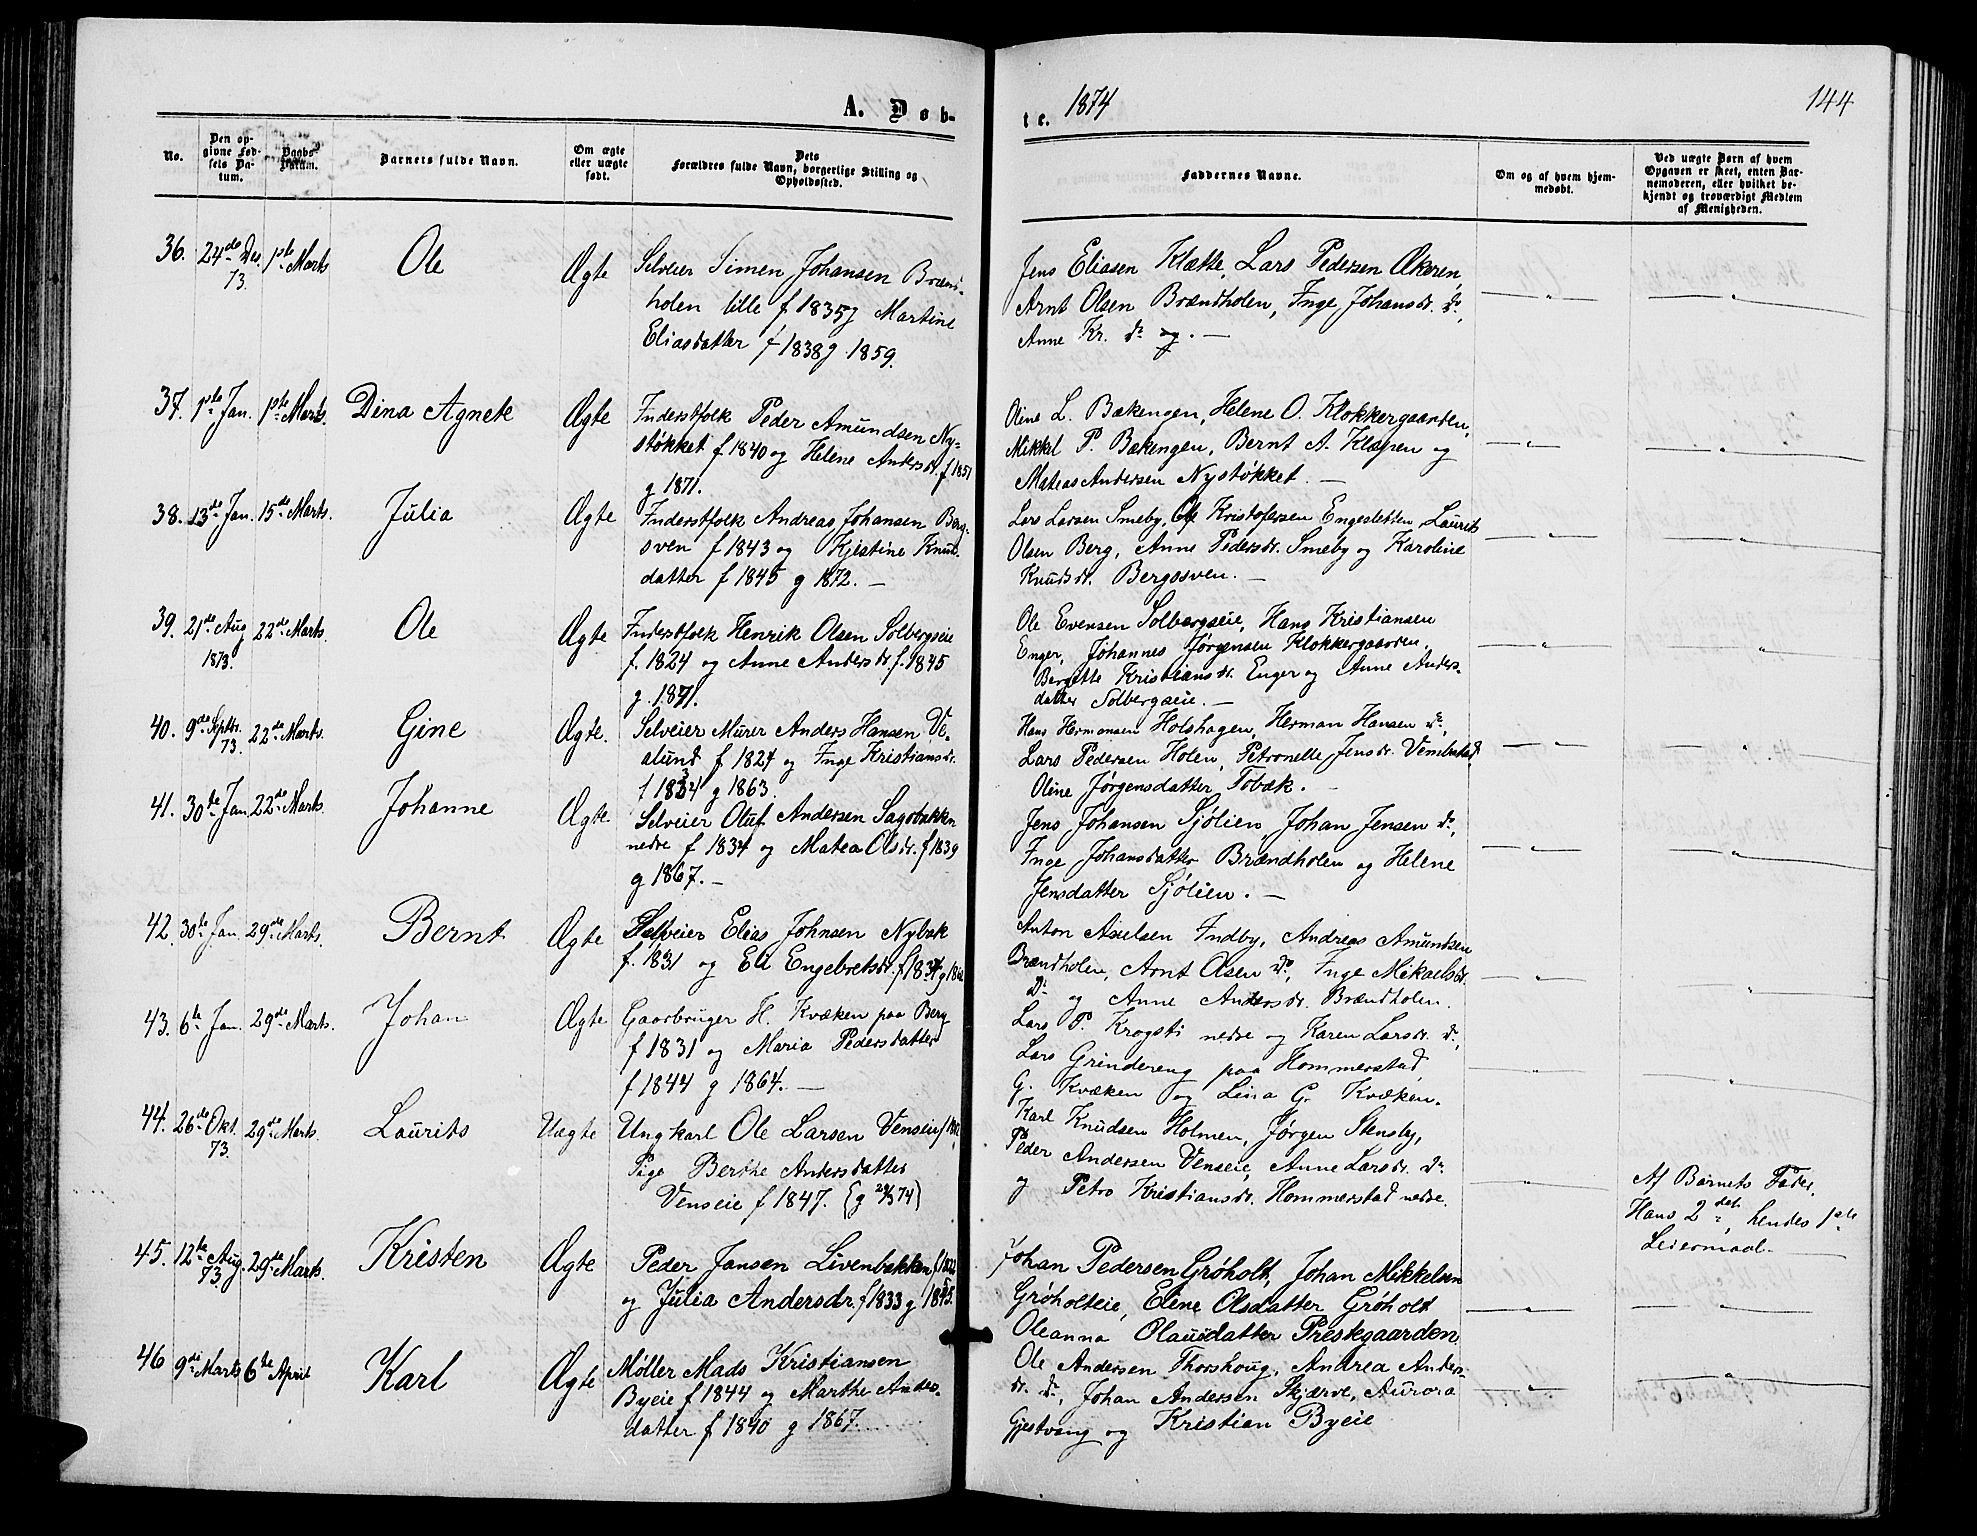 A. Døb-
te. 1874
144
No.
Den op-
givne Fød-
sels Da-
tum.
Daabs
Datum.
Barnets fulde Navn.
Om ægte
eller uægte
født.
Dets
Forældres fulde Navn, borgerlige Stilling og
Opholdssted.
Faddernes Navne.
Om og af hvem hjem-
medøbt.
Ved uægte Børn af hvem
Opgaven er skeet, enten Bar-
nemoderen, eller hvilket be-
kjendt og troværdigt Medlem
af Menigheden.
36. 24de Des. 73. 1ste Marts Ole Ægte
Selveier Simen Johansen Brænd-
holen lille f 1835 og Martine
Eliasdatter f 1838 g 1859.
Jens Eliasen Klætte, Lars Pedersen Økeren,
Arnt Olsen Brændholen, Inge Johansdr. do,
Anne Kr. do og. —
37. 1ste Jan. 1ste Marts. Dina Agnete Ægte
Inderstfolk Peder Amundsen Ny-
støkket f 1840 og Helene Andersdr. f 1851
g 1871.
Oline L. Bækengen, Helene O. Klokkergaarden,
Mikkel P. Bækengen, Bernt A. Klæpen og
Mateas Andersen Nystøkket. —
38. 13de Jan. 15de Marts. Julia Ægte
Inderstfolk Andreas Johansen Berg-
sven f 1843 og Kjestine Knuds-
datter f 1845 g 1872. —
Lars Larsen Smeby, Ole Kristofersen Engesletten, Laurits
Olsen Berg, Anne Pedersdr. Smeby og Karoline
Knudsdr. Bergssven. —
39. 21de Aug 1873. 22de Marts. Ole Ægte
Inderstfolk Henrik Olsen Solbergseie
f. 1824 og Anne Andersdr. f. 1845
g. 1871.
Ole Evensen Solbergseie, Hans Kristiansen
Enger, Johannes Jørgensen Klokkergaarden,
Bergette Kristiansdr. Enger og Anne Anders-
datter Solbergseie. —
40. 9de Septbr. 73. 22de Marts. Gine Ægte.
Selveier Murer Anders Hansen Ve-
slund f 1824 og Inge Kristiansdr.
f 1834 g 1863.
Hans Hermansen Holshagen, Herman Hansen do,
Lars Pedersen Holen, Petronelle Jensdr. Vembstad
Oline Jørgensdatter Tobæk. —
41. 30te Jan. 22de Marts. Johanne Ægte.
Selveier Oluf Andersen Sagbakken
nedre f 1834 og Matea Olsdr. f 1839
g 1867. —
Jens Johansen Sjølien, Johan Jensen do,
Inge Johansdatter Brændholen og Helene
Jensdatter Sjølien. —
42. 30te Jan. 29de Marts. Bernt Ægte
Selveier Elias Johnsen Nybæk
f. 1831 og Eli Engebretsdr. f 1834
Anton Axelsen Indby, Andreas Amundsen
Brændholen, Arnt Olsen do, Inge Mikaelsdr.
do og Anne Andersdr. Brændholen.
43. 6te Jan. 29de Marts. Johan Ægte
Gaarbruger H. Kvæken paa Berg
f 1831 og Maria Pedersdatter
f 1844 g 1864. —
Lars P. Krogsti nedre og Karen Larsdr. do,
Lars Grindereng paa Hommerstad,
G. Kvæken og Lina G. Kvæken.
44. 26de Okt. 73. 29de Marts. Laurits Uægte
Ungkarl Ole Larsen Venseie
Pige Berthe Andersdatter
Venseie f 1847. (g 29/3 74)
Karl Knudsen Holmen, Jørgen Stensby,
Peder Andersen Venseie, Anne Larsdr. do
og Petro Kristiansdr. Hommerstad nedre.
Af Barnets Fader.
Hans 2det, hendes 1ste
Leiermaal. —
45. 12te Aug. 73 29de Marts. Kristen Ægte
Peder Jansen Livenbakken
og Julia Andersdr. f 1833 g
Johan Pedersen Grøholt, Johan Mikkelsen
Grøholteie, Eline Olsdatter Grøholt
Oleanna Olausdatter Prestgaarden
46 9de Marts 6te April Karl Ægte
Møller Mads Kristiansen
Byeie f 1844 og Marthe Anders-
datter f 1840 g 1867.
Ole Andersen Thorshoug, Andrea Anders-
dr. do, Johan Andersen Skjærve, Aurora
Gjestvang og Kristian Byeie